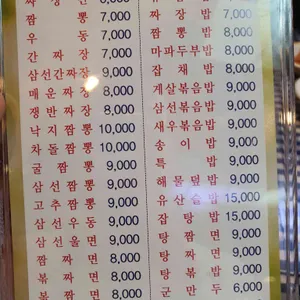 짬 뽕 7,000
우 동 7,000
간 짜 장 7,000
삼선간짜장 9,000
매운짜장 8,000
쟁반짜장 8,000
낙지짬뽕 10,000
차돌짬뽕 10,000
굴 짬 뽕 9,000
삼선짬뽕 9,000
고추짬뽕 9,000
삼선우동 9,000
삼선울면 9,000
짬 짜 면 8,000
볶 짜 면 8,000
볶 짬 면 8,000
짜 장 밥 7,000
짬 뽕 밥 8,000
마파두부밥 8,000
잡 채 밥 8,000
게살볶음밥 9,000
삼선볶음밥 9,000
새우볶음밥 9,000
송 이 밥 9,000
특 밥 9,000
해물덮밥 9,000
유산슬밥 15,000
잡 탕 밥 15,000
탕 짬 면 9,000
탕 짜 면 9,000
탕 볶 밥 9,000
군 만 두 6,000